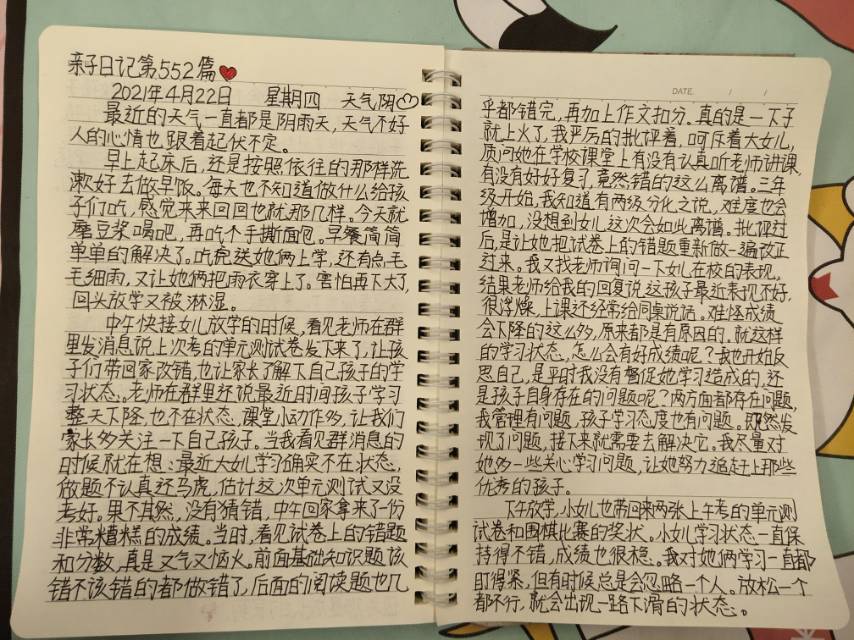 亲子日记第552篇
2021年4月22日 星期四 天气阴
最近的天气一直都是阴雨天,天气不好
人的心情也跟着起伏不定。
早上起床后,还是按照依往的那样洗
漱好去做早饭。每天也不知道做什么给孩
子们吃,感觉来来回回也就那几样。今天就
磨豆浆喝吧,再吃个手撕面包。早餐简简
单单的解决了。吃完送她俩上学,还有点毛
毛细雨,又让她俩把雨衣穿上了。害怕再下大了,
回头放学又被淋湿。
中午快接女儿放学的时候,看见老师在群
里发消息说上次考的单元测试卷发下来了,让孩
子们带回家改错,也让家长了解下自己孩子的学
习状态。老师在群里还说最近时间孩子学习
整天下降,也不在状态,课堂小动作多,让我们
家长多关注一下自己孩子。当我看见群消息的
时候就在想:最近大女儿学习确实不在状态,
做题不认真还马虎,估计这次单元测试又没
考好。果不其然,没有猜错,中午回家拿来了一份
非常糟糕的成绩。当时,看见试卷上的错题
和分数,真是又气又恼火。前面基础知识题该
错不该错的都做错了,后面的阅读题也几
DATE. / /
乎都错完,再加上作文扣分。真的是一下子
就上火了,我严厉的批评着,呵斥着大女儿,
质问她在学校课堂上有没有认真听老师讲课,
有没有好好复习,竟然错的这么离谱。三年
级开始,我知道有两级分化之说,难度也会
增加,没想到女儿这次会如此离谱。批评过
后,是让她把试卷上的错题重新做一遍改正
过来。我又找老师询问一下女儿在校的表现,
结果老师给我的回复说这孩子最近表现不好,
很浮燥,上课还经常给同桌说话。难怪成绩
会下降的这么多,原来都是有原因的。就这样
的学习状态,怎么会有好成绩呢?我也开始反
思自己,是平时我没有督促她学习造成的,还
是孩子自身存在的问题呢?两方面都存在问题,
我管理有问题,孩子学习态度也有问题。既然发
现了问题,接下来就需要去解决它。我尽量对
她多一些关心学习问题,让她努力追赶上那些
优秀的孩子。
下午放学,小女儿也带回来两张上午考的单元测
试卷和围棋比赛的奖状。小女儿学习状态一直保
持得不错,成绩也很稳。我对她俩学习一直都
盯得紧,但有时候总是会忽略一个人。放松一个
都不行,就会出现一路下滑的状态。